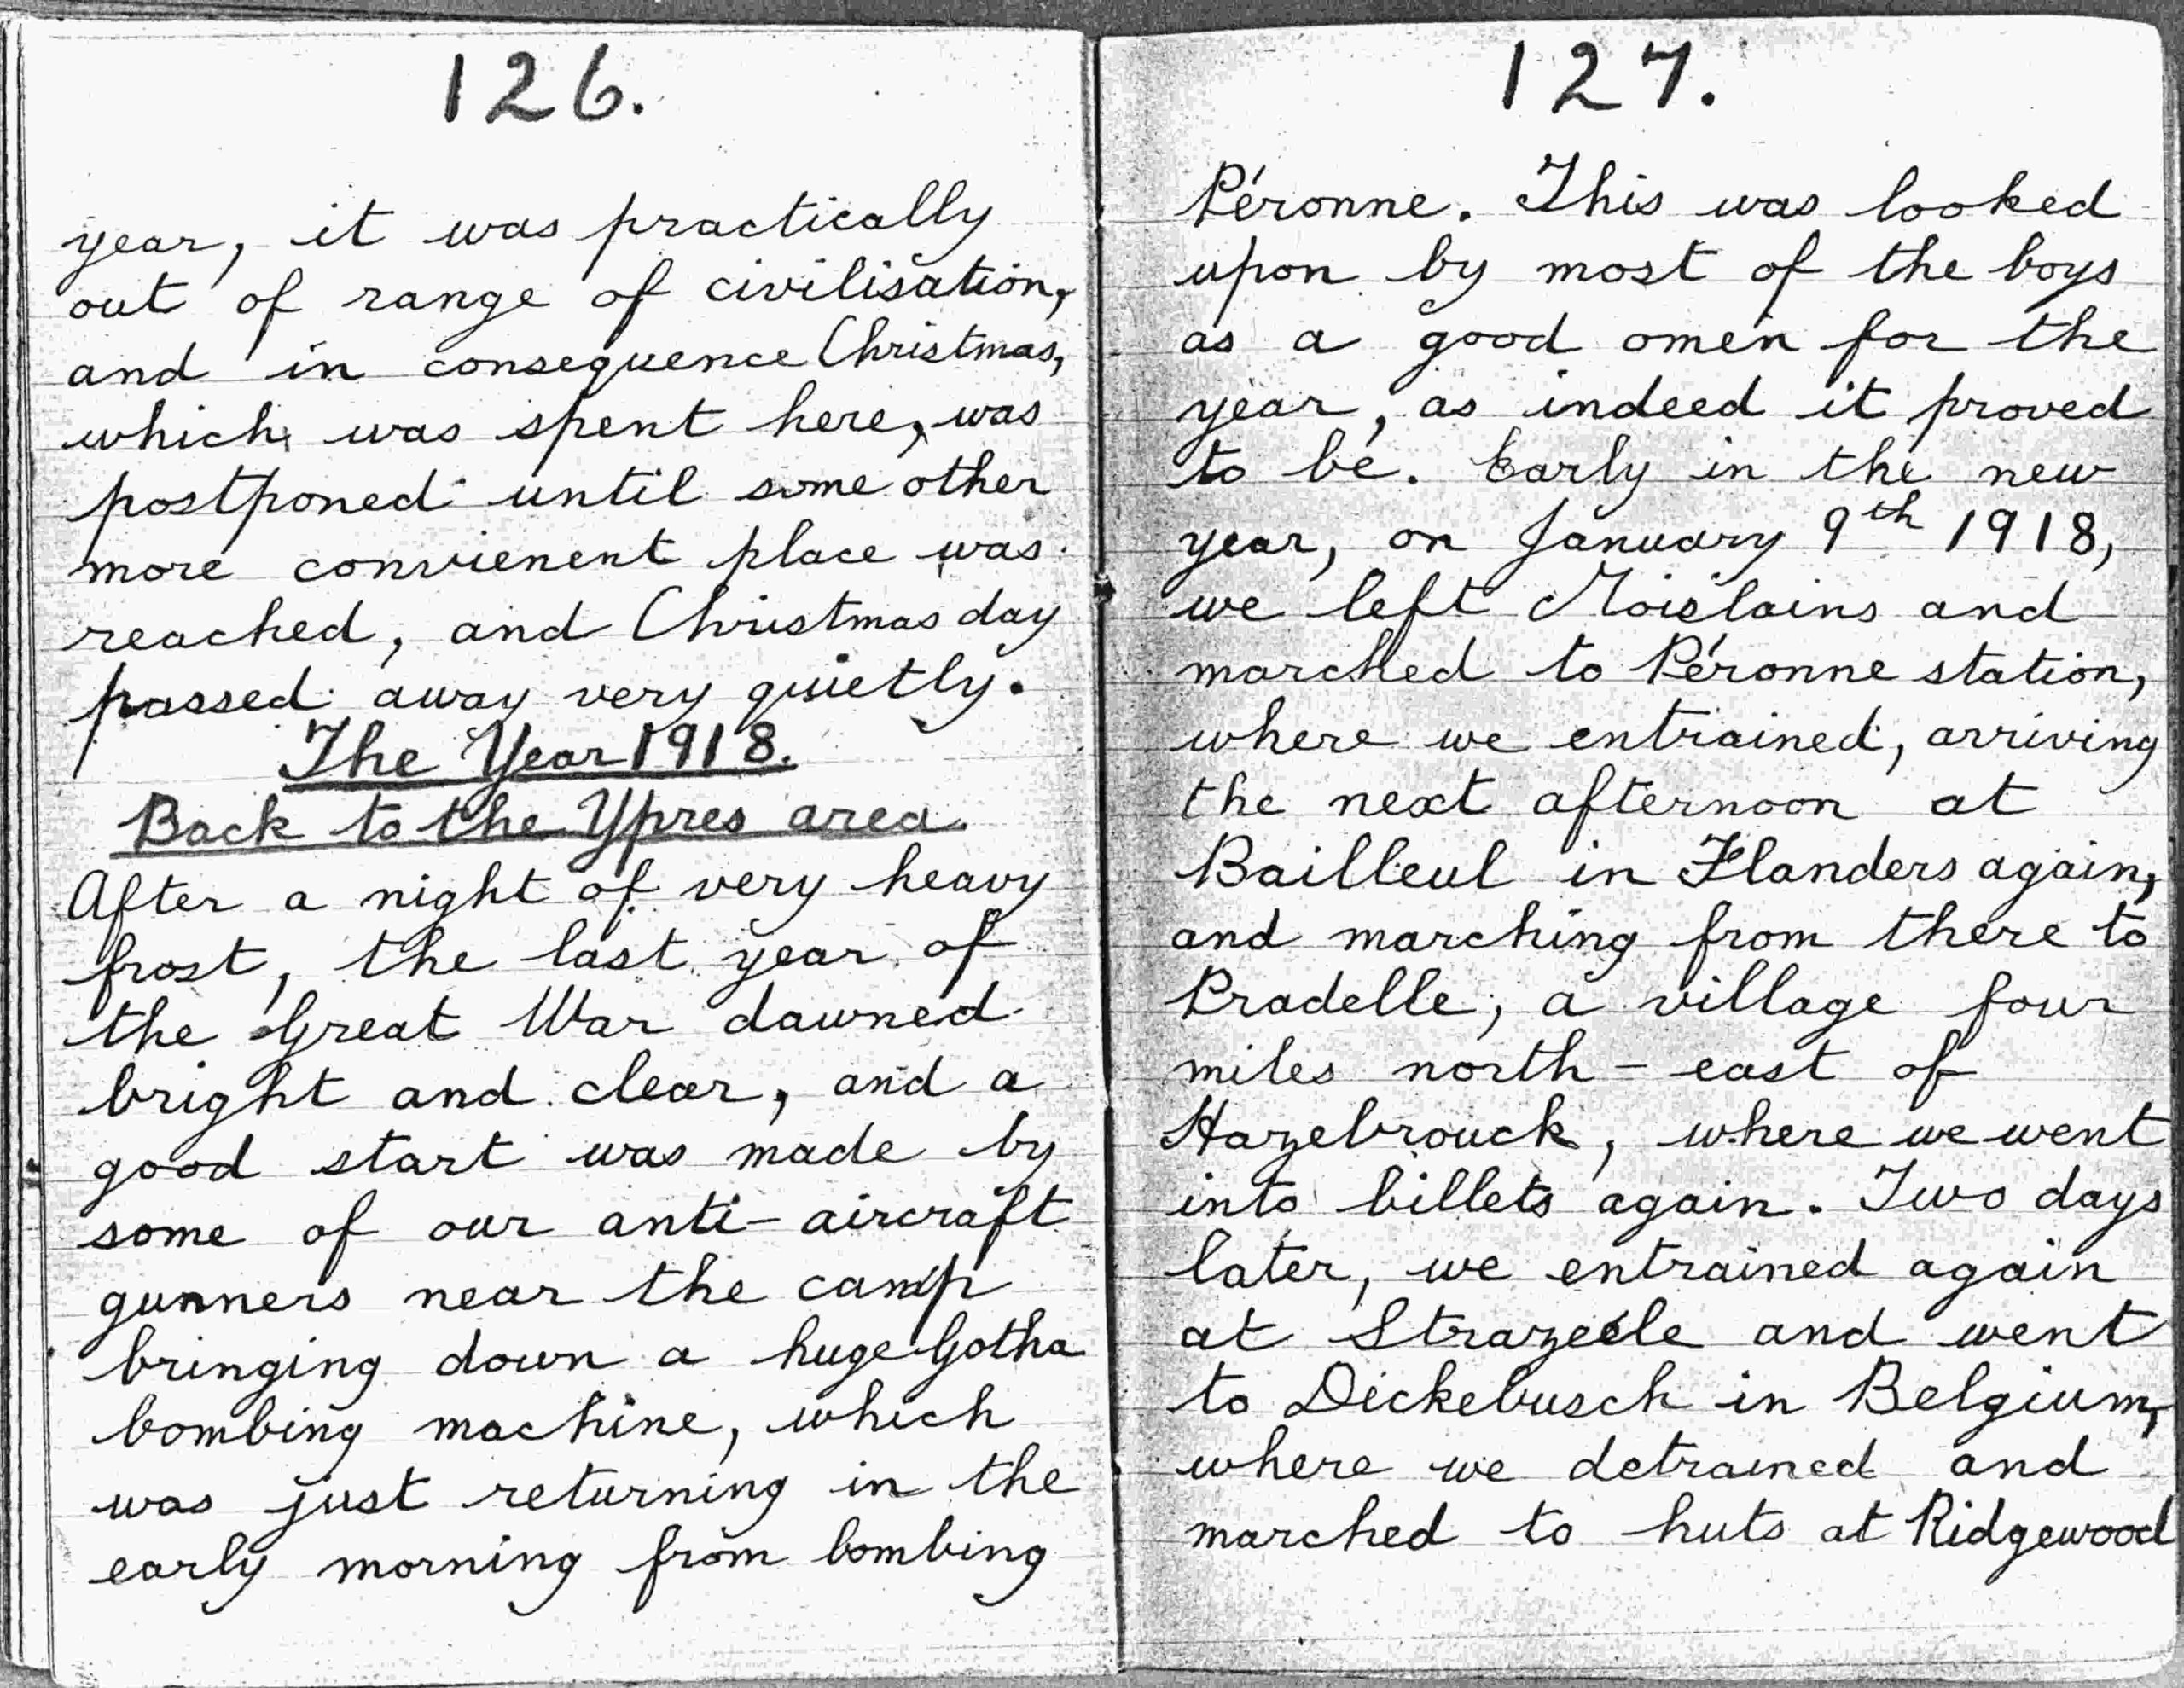 126.
year, it was practically
out of range of civilisation,
and in consequence Christmas,
which was spent here, was
postponed until some other
more convienent place was
reached, and Christmas day
passed away very quietly.
The Year 1918.
Back to the Ypres area.
After a night of very heavy
frost, the last year of
the Great War dawned
bright and clear, and a
good start was made by
some of our anti-aircraft
gunners near the camp
bringing down a huge Gotha
bombing machine, which
was just returning in the
early morning from bombing
127.
Péronne. This was looked
upon by most of the boys
as a good omen for the
year, as indeed it proved
to be. Early in the new
year, on January 9th 1918,
we left Moislains and
marched to Péronne station,
where we entrained, arriving
the next afternoon at
Bailleul in Flanders again,
and marching from there to
Pradelle, a village four
miles north-east of
Hazebrouck, where we went
into billets again. Two days
later, we entrained again
at Strazeele and went
to Dickebusch in Belgium,
where we detrained and
marched to huts at Ridgewood